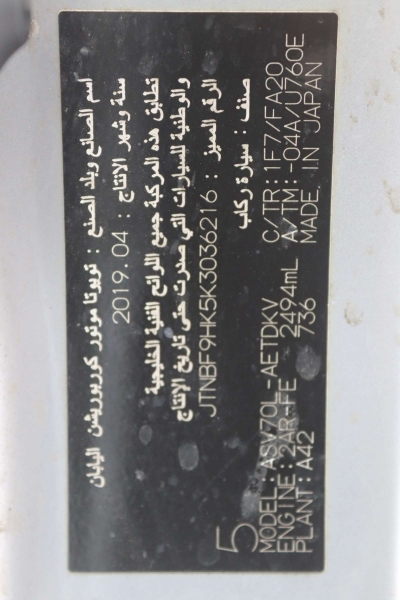 اسم الصانع وبلد الصنع : تويوتا موتور كوربوريشن اليابان
سنة وشهر الانتاج : 2019.04
تطابق هذه المركبة جميع اللوائح الفنية الخليجية
والوطنية للسيارات التي صدرت حتى تاريخ الإنتاج
الرقم المميز : JTNBF9HK5K3036216
صنف : سيارة ركاب
5
MODEL: ASV70L-AETDKV C/TR: 1F7/FA20
ENGINE: 2AR-FE 2494mL A/TM: -04A/U760E
PLANT: A42 736 MADE IN JAPAN